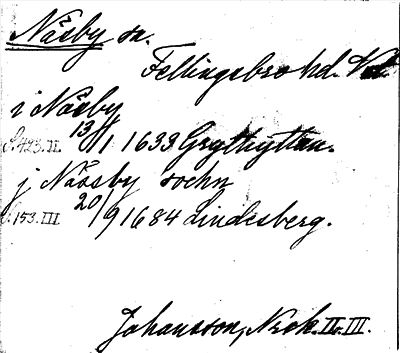 Näsby sn.
Fellingsbro hd. Vstm.
i Näsby
S. 423. II. 13/1 1633 Grythyttan.
j Näsby sochn
S. 153. III 20/9 1684 Lindesberg.
Johansson, Nzok. II. III.